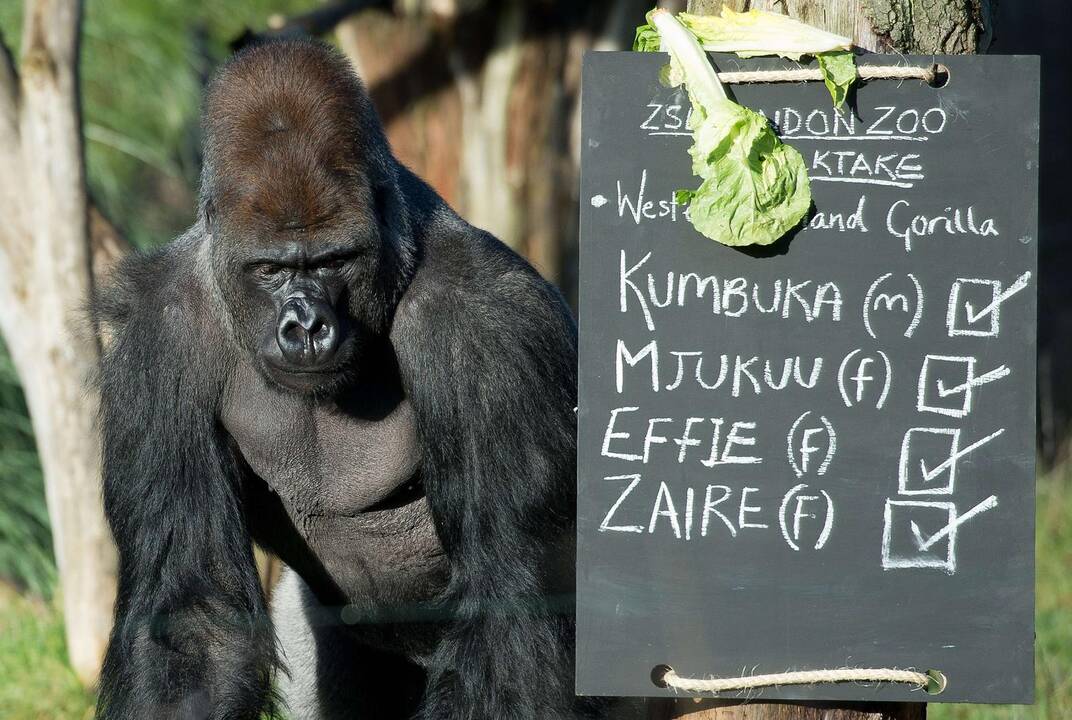 ZSL LONDON ZOO
KTAKE
• West and Gorilla
KUMBUKA (m)
MJUKUU (f)
EFFIE (F)
ZAIRE (F)